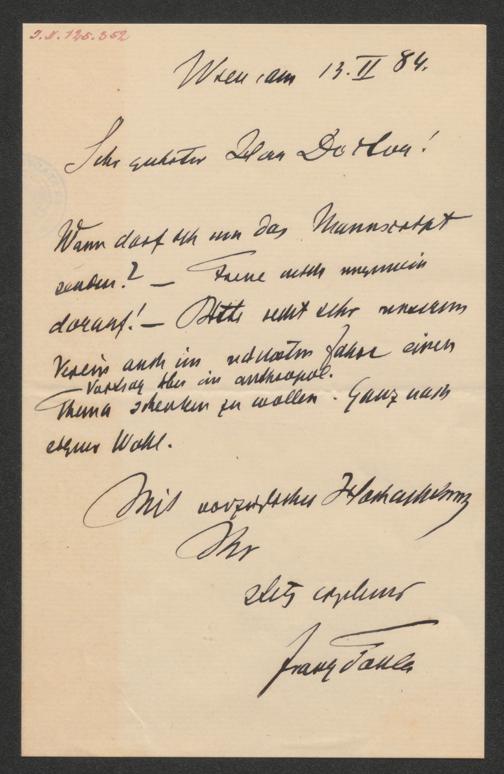 I.N. 125.352
Wien, am 13. II 84.
Sehr geehrter Herr Doctor!
Wann darf ich um das Manuscript
senden? — Freue mich ungemein
darauf! — Bitte recht sehr unserem
Verein auch im nächsten Jahre einen
Vortrag über ein anthropol.
Thema schenken zu wollen. Ganz nach
eigner Wahl.
Mit vorzüglicher Hochachtung
Ihr
stets ergebener
Franz Toula